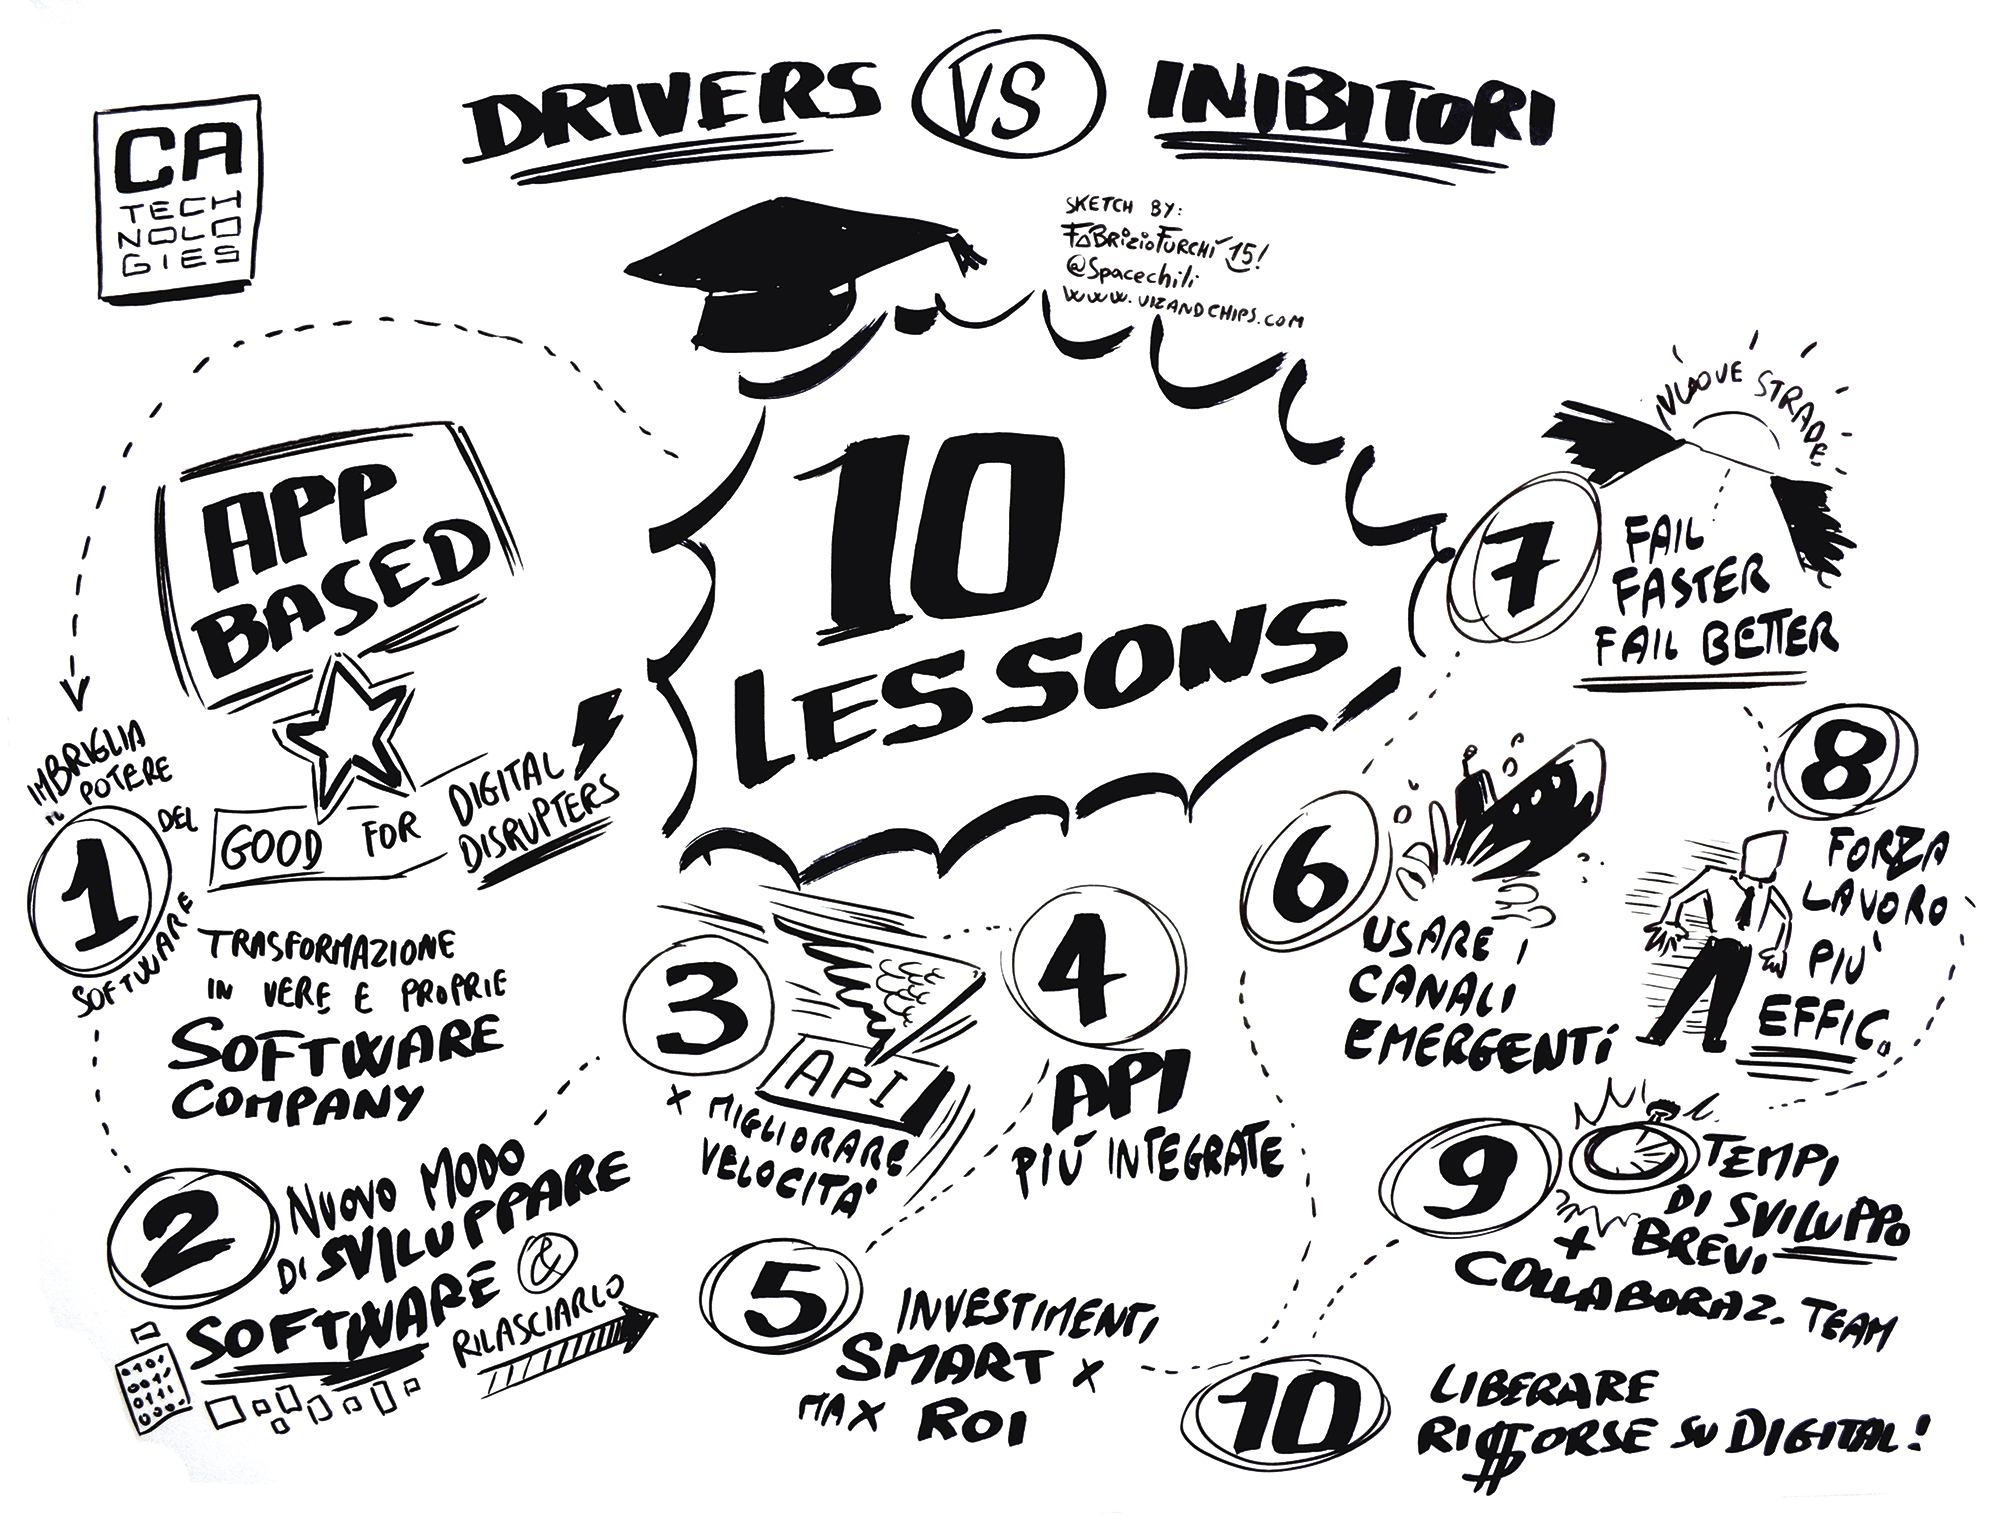 DRIVERS VS INIBITORI
CA
TECH
NOLO
GIES
SKETCH BY:
FABRIZIO FURCHÍ 15!
@Spacechili
WWW.VIZANDCHIPS.COM
10
LESSONS
APP
BASED
GOOD FOR DIGITAL
DISRUPTERS
IMBRIGLIA
IL POTERE
1 DEL
SOFTWARE
TRASFORMAZIONE
IN VERE E PROPRIE
SOFTWARE
COMPANY
2 NUOVO MODO
DI SVILUPPARE
SOFTWARE &
RILASCIARLO
0101
001
0111
000
3
API
x MIGLIORARE
VELOCITA'
4
API
PIÚ INTEGRATE
5 INVESTIMENTI
SMART x
MAX ROI
6
USARE I
CANALI
EMERGENTI
NUOVE STRADE
7 FAIL
FASTER
FAIL BETTER
8
FORZA
LAVORO
PIU'
EFFIC.
9 TEMPI
DI SVILUPPO
+ BREVI
COLLABORAZ. TEAM
10 LIBERARE
RI$ORSE SU DIGITAL!